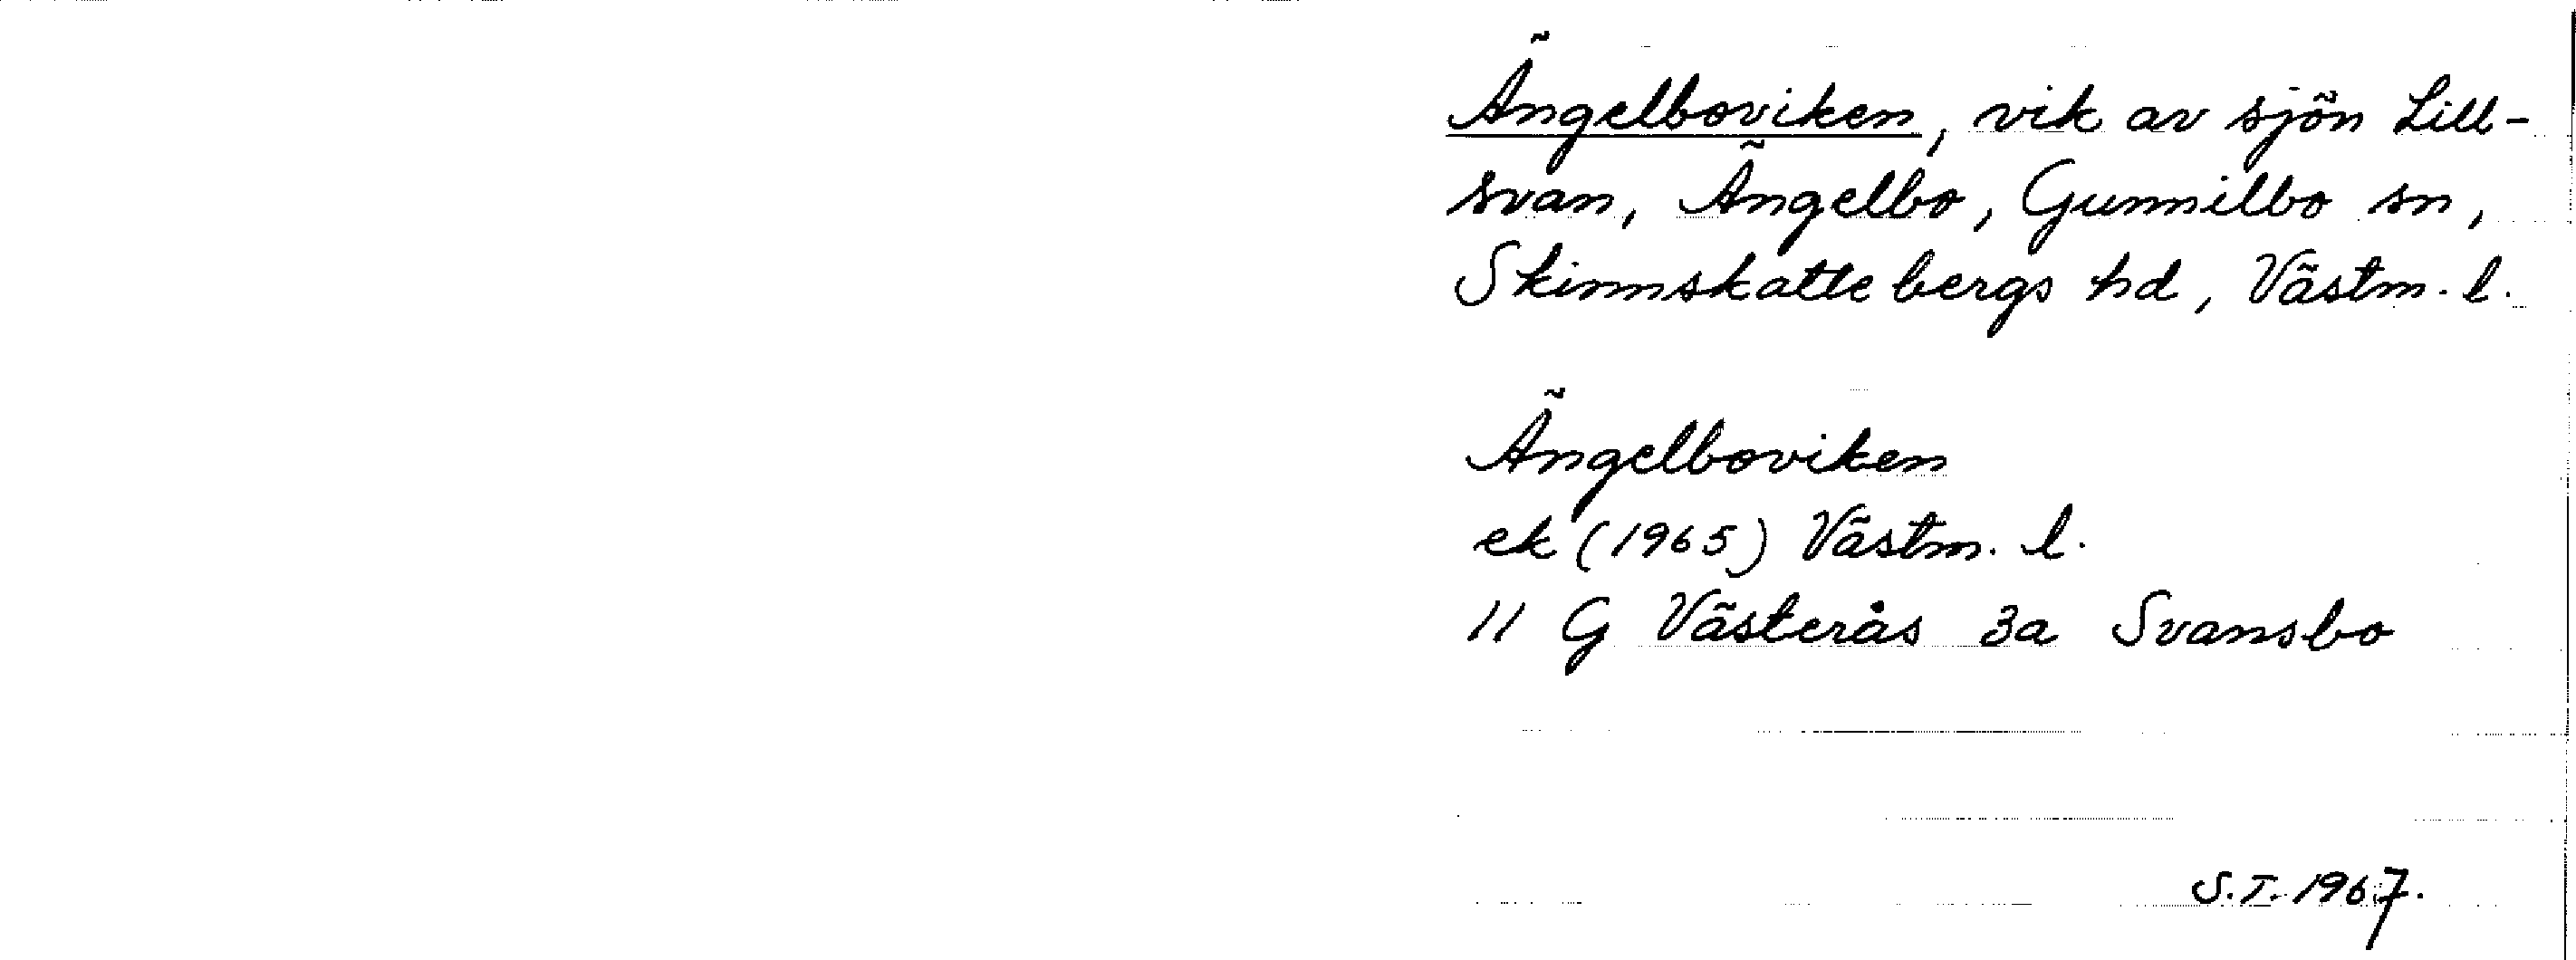 Ängelboviken, vik av sjön Lill-
svan, Ängelbo, Gunnilbo sn,
Skinnskattebergs hd, Västm. l.
Ängelboviken
ek (1965) Västm. l.
11 G Västerås 3a Svansbo
S.T. 1967.